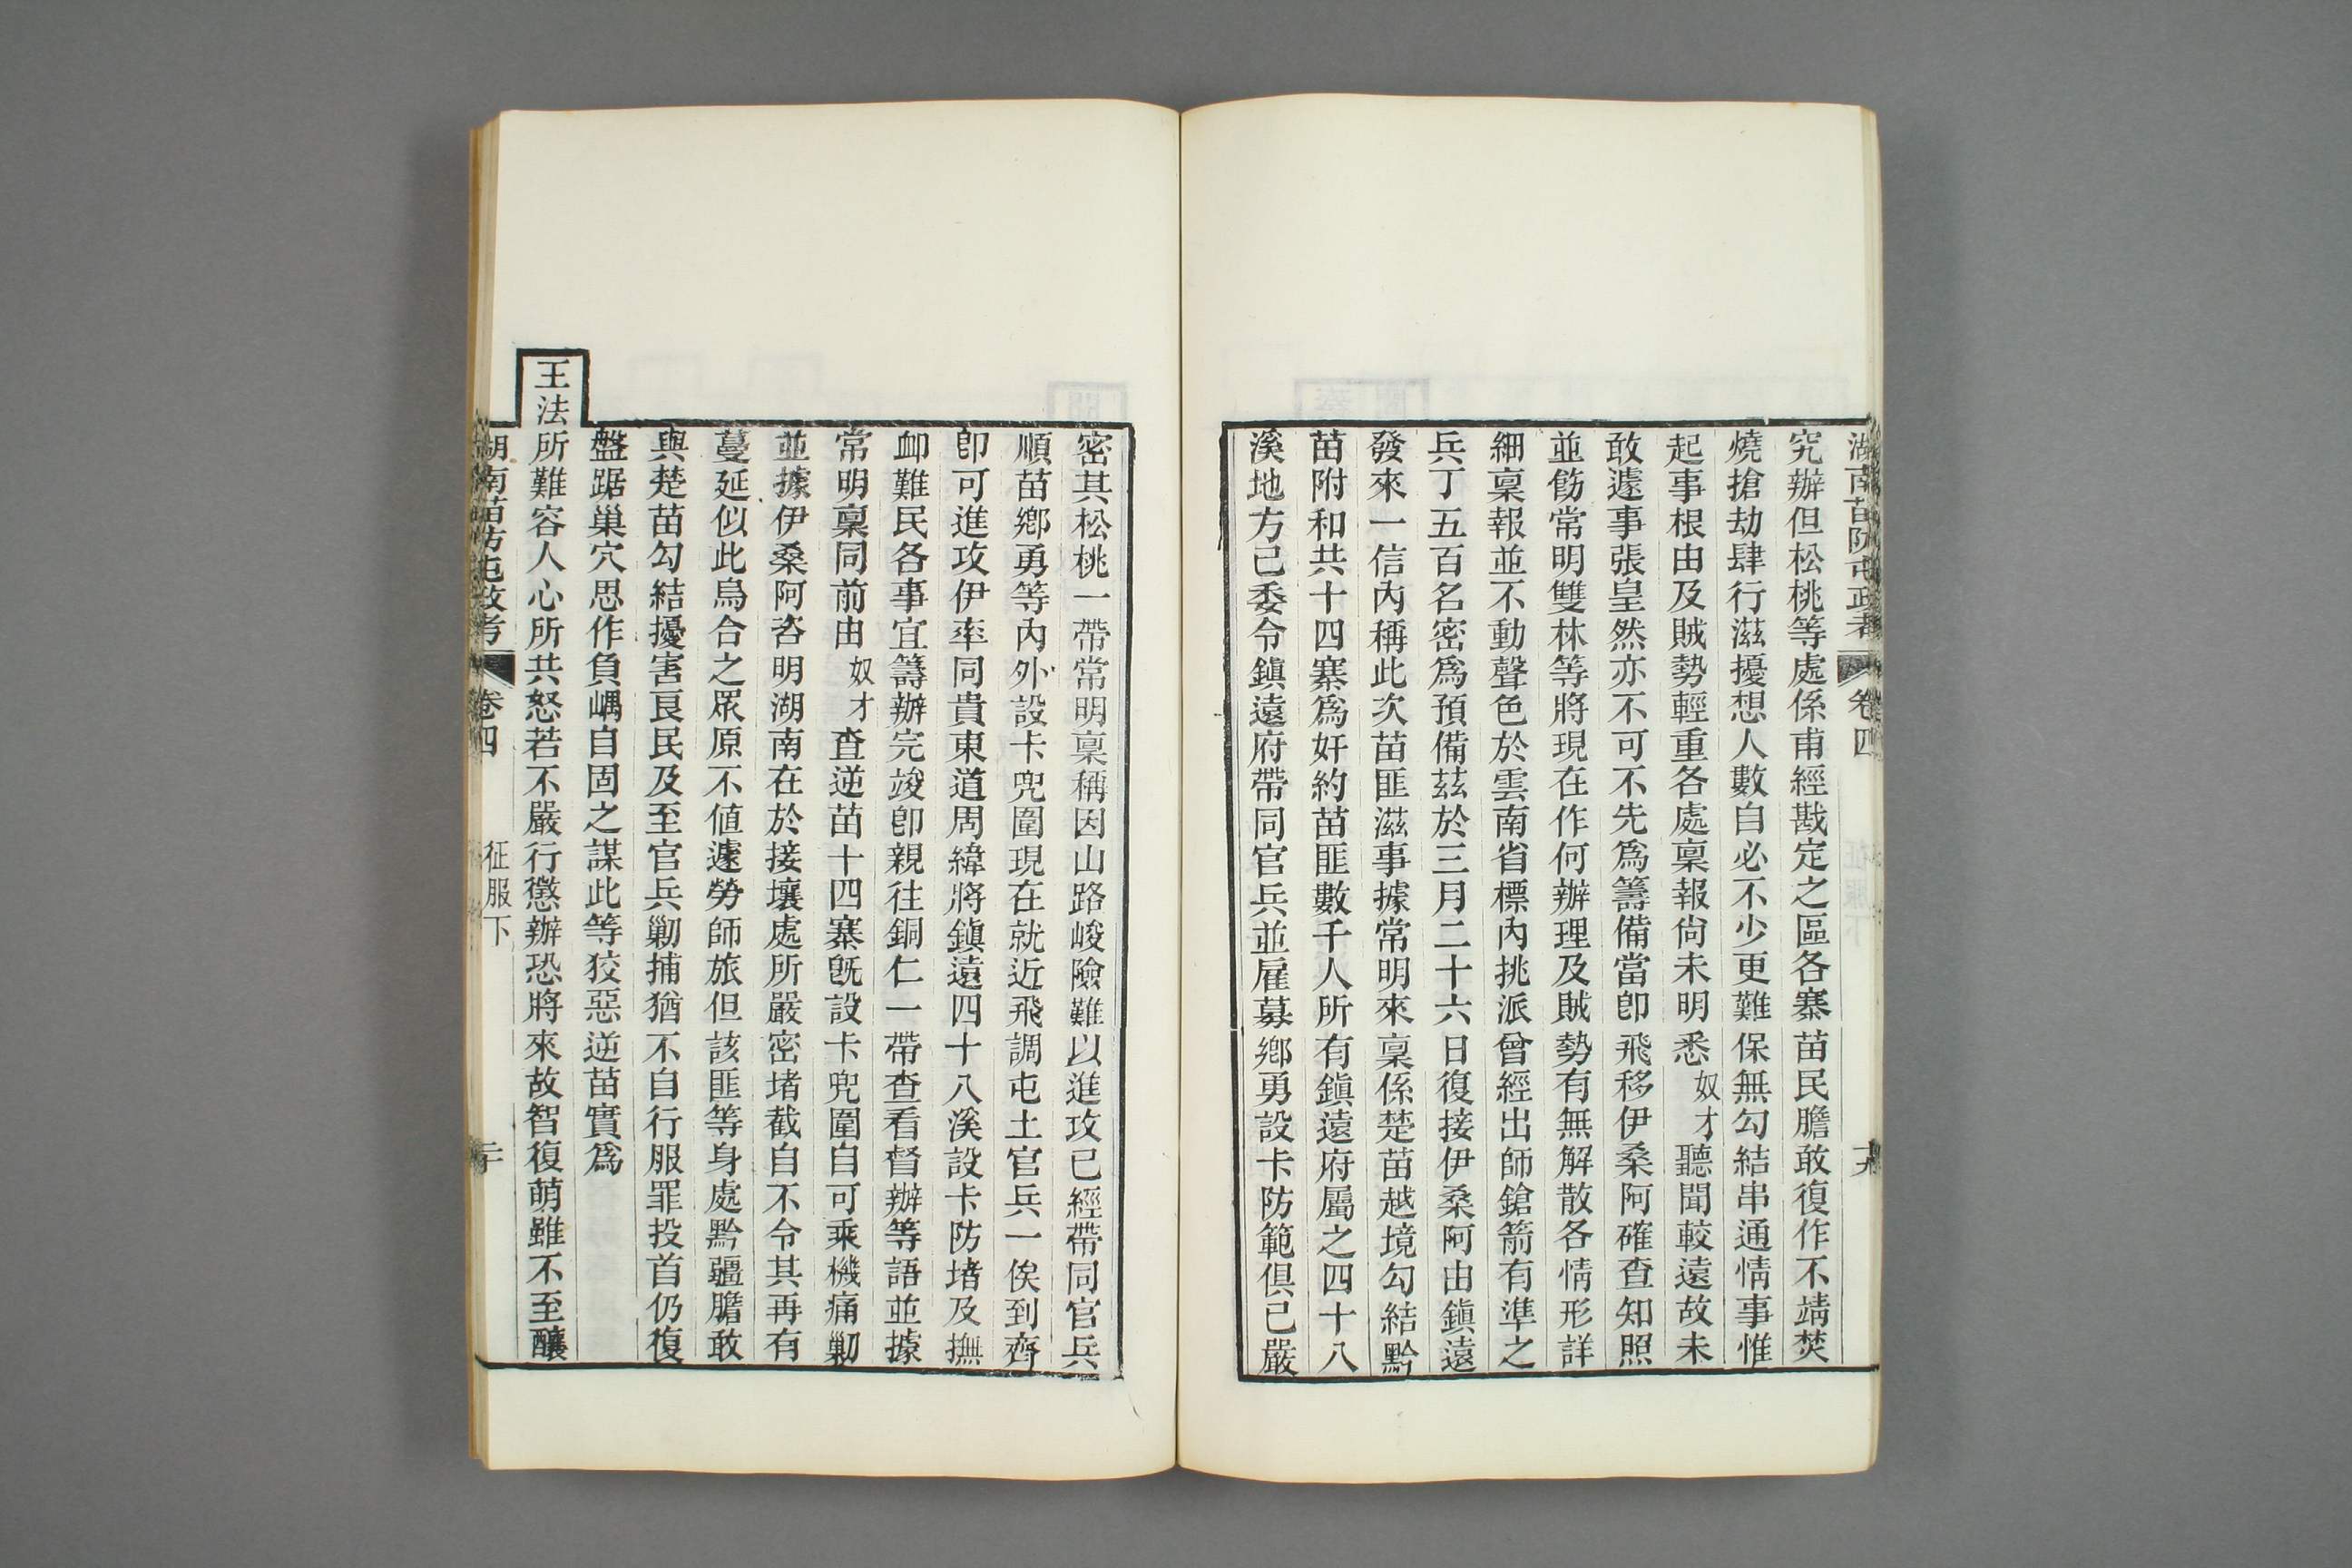 湖南苗防屯政考 卷四
究辦但松桃等處係甫經戡定之區各寨苗民膽敢復作不靖焚
燒搶劫肆行滋擾想人數自必不少更難保無勾結串通情事惟
起事根由及賊勢輕重各處稟報尙未明悉奴才聽聞較遠故未
敢遽事張皇然亦不可不先爲籌備當卽飛移伊桑阿確查知照
並飭常明雙林等將現在作何辦理及賊勢有無解散各情形詳
細稟報並不動聲色於雲南省標內挑派曾經出師鎗箭有準之
兵丁五百名密爲預備茲於三月二十六日復接伊桑阿由鎭遠
發來一信內稱此次苗匪滋事據常明來稟係楚苗越境勾結黔
苗附和共十四寨爲奸約苗匪數千人所有鎭遠府屬之四十八
溪地方已委令鎭遠府帶同官兵並雇募鄉勇設卡防範俱已嚴
密其松桃一帶常明稟稱因山路峻險難以進攻已經帶同官兵
順苗鄉勇等內外設卡兜圍現在就近飛調屯土官兵一俟到齊
卽可進攻伊率同貴東道周緯將鎭遠四十八溪設卡防堵及撫
卹難民各事宜籌辦完竣卽親往銅仁一帶查看督辦等語並據
常明稟同前由奴才查逆苗十四寨旣設卡兜圍自可乘機痛剿
並據伊桑阿咨明湖南在於接壤處所嚴密堵截自不令其再有
蔓延似此烏合之眾原不值遽勞師旅但該匪等身處黔疆膽敢
與楚苗勾結擾害良民及至官兵剿捕猶不自行服罪投首仍復
盤踞巢穴思作負嵎自固之謀此等狡惡逆苗實爲
王法所難容人心所共怒若不嚴行懲辦恐將來故智復萌雖不至釀
湖南苗防屯政考 卷四 征服下 二十